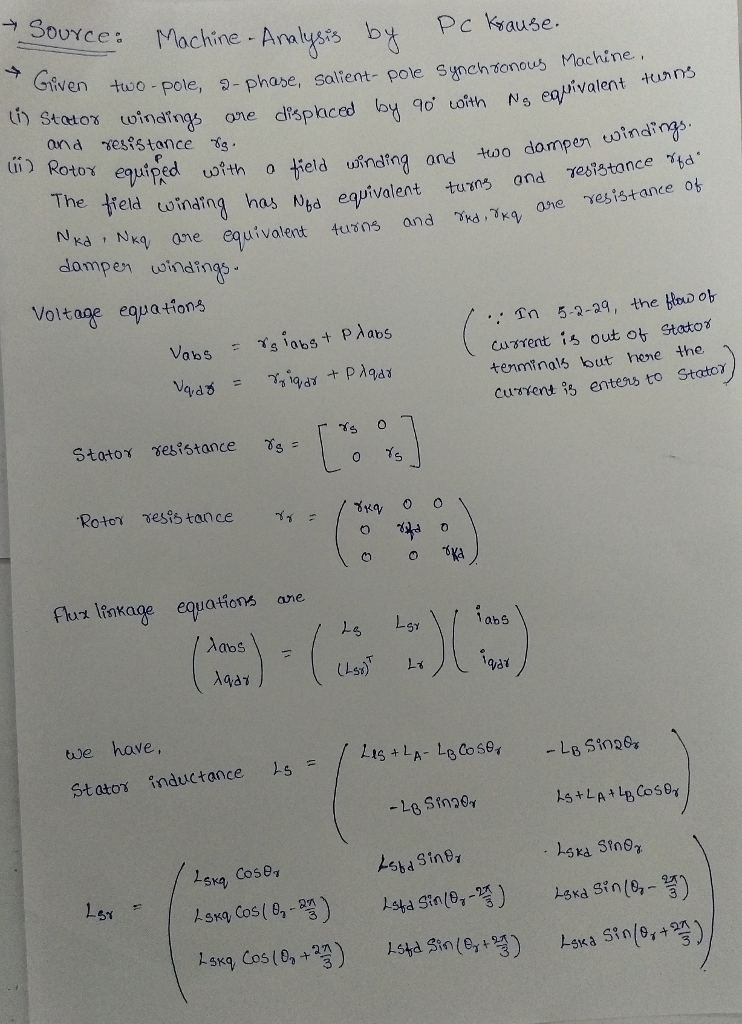 → Source: Machine-Analysis by PC Krause.
→ Given two-pole, 2-phase, salient-pole synchronous Machine,
(i) Stator windings are displaced by 90° with Ns equivalent turns
and resistance rs.
(ii) Rotor equipped with a field winding and two damper windings.
The field winding has Nfd equivalent turns and resistance rfd.
Nkd, Nkq are equivalent turns and rkd, rkq are resistance of
damper windings.
Voltage equations
Vabs = rs iabs + Pλabs
Vqdr = rr iqdr + Pλqdr
(∵ In 5-2-29, the flow of
current is out of stator
terminals but here the
current is enters to stator)
Stator resistance rs = [ rs 0
0 rs ]
Rotor resistance rr = ( rkq 0 0
0 rfd 0
0 0 rkd )
Flux linkage equations are
( λabs
λqdr ) = ( Ls Lsr
(Lsr)T Lr ) ( iabs
iqdr )
we have,
Stator inductance Ls = ( Lls + LA - LB Cosθr - LB Sin2θr
- LB Sin2θr Ls + LA + LB Cosθr )
Lsr = ( Lskq Cosθr Lsfd Sinθr Lskd Sinθr
Lskq Cos(θr - 2π/3) Lsfd Sin(θr - 2π/3) Lskd Sin(θr - 2π/3)
Lskq Cos(θr + 2π/3) Lsfd Sin(θr + 2π/3) Lskd Sin(θr + 2π/3) )